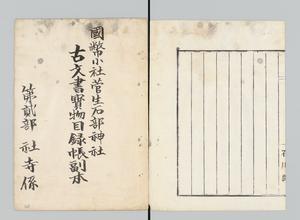 國幣小社菅生石部神社
古文書寳物目録帳副本
第貳部 社寺係
石川縣